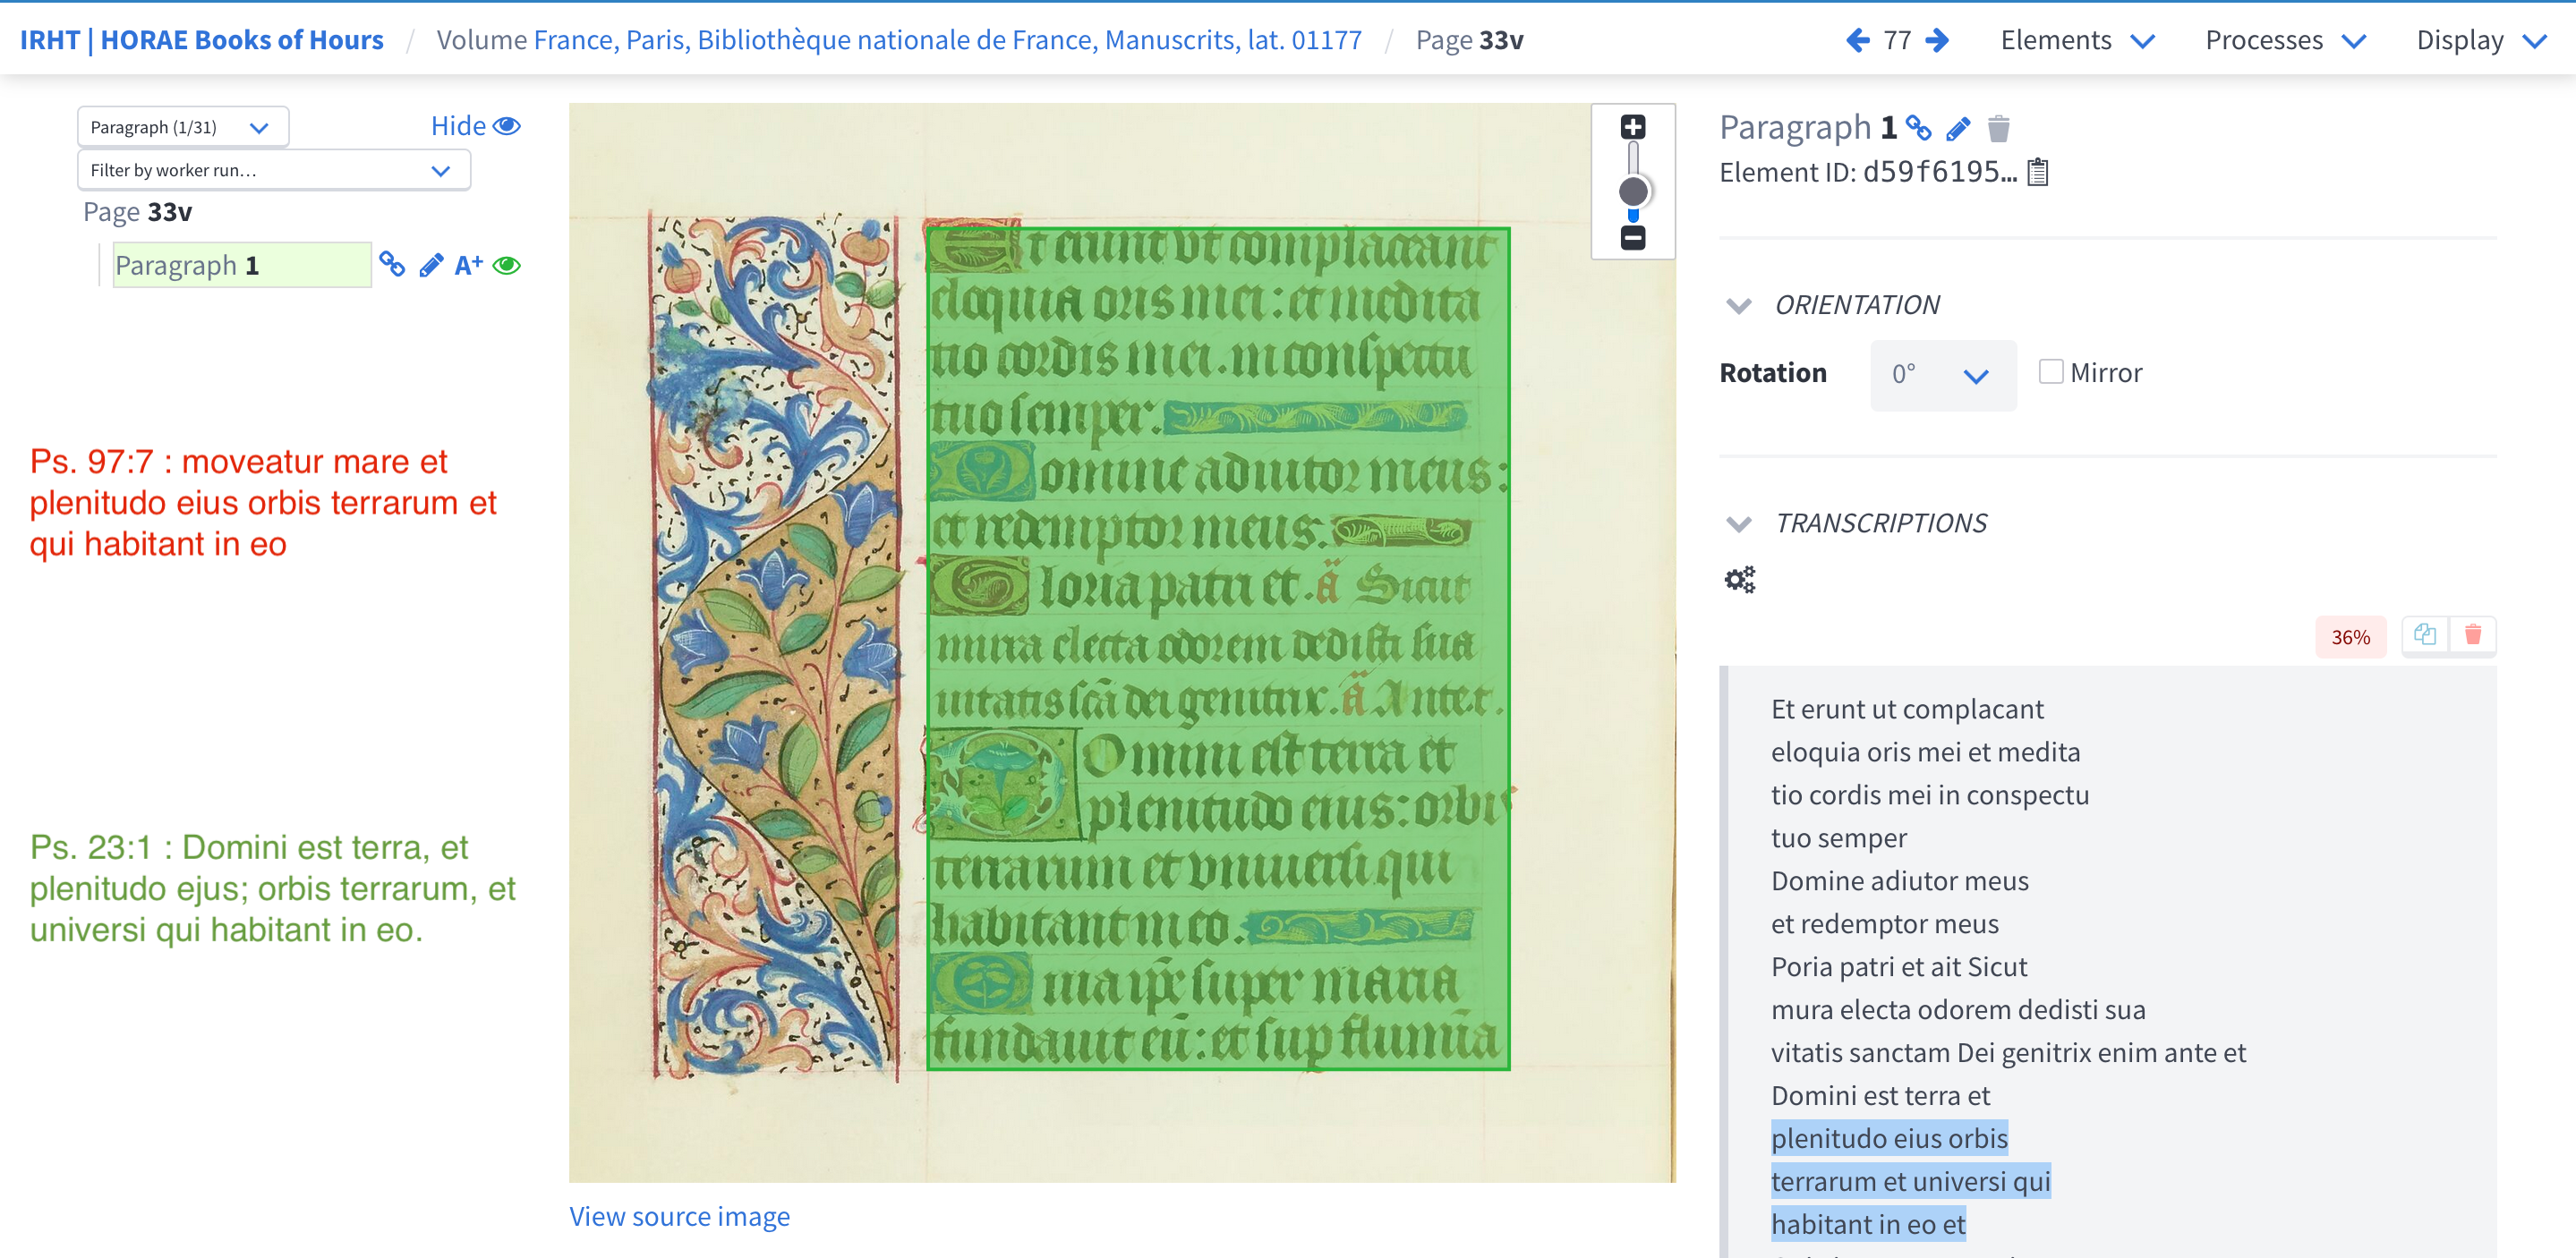 IRHT | HORAE Books of Hours / Volume France, Paris, Bibliothèque nationale de France, Manuscrits, lat. 01177 / Page 33v
77 Elements Processes Display
Paragraph (1/31)
Hide
Filter by worker run...
Page 33v
Paragraph 1 A+
Ps. 97:7 : moveatur mare et
plenitudo eius orbis terrarum et
qui habitant in eo
Ps. 23:1 : Domini est terra, et
plenitudo ejus; orbis terrarum, et
universi qui habitant in eo.
Et erunt vt complaceant
eloquia oris mei: et medita
tio cordis mei. in conspectu
tuo semper.
Domine adiutor meus:
et redemptor meus.
Gloria patri et. ā Sicut
mirra electa odorem dedisti sua
uitatis scā dei genitrix. ā Ante t.
Domini est terra et
plenitudo eius: orbis
terrarum et vniuersi qui
habitant in eo.
Quia ip̄e super maria
fundauit eū: et sup flumīa
View source image
Paragraph 1
Element ID: d59f6195...
ORIENTATION
Rotation 0° Mirror
TRANSCRIPTIONS
36%
Et erunt ut complacant
eloquia oris mei et medita
tio cordis mei in conspectu
tuo semper
Domine adiutor meus
et redemptor meus
Poria patri et ait Sicut
mura electa odorem dedisti sua
vitatis sanctam Dei genitrix enim ante et
Domini est terra et
plenitudo eius orbis
terrarum et universi qui
habitant in eo et